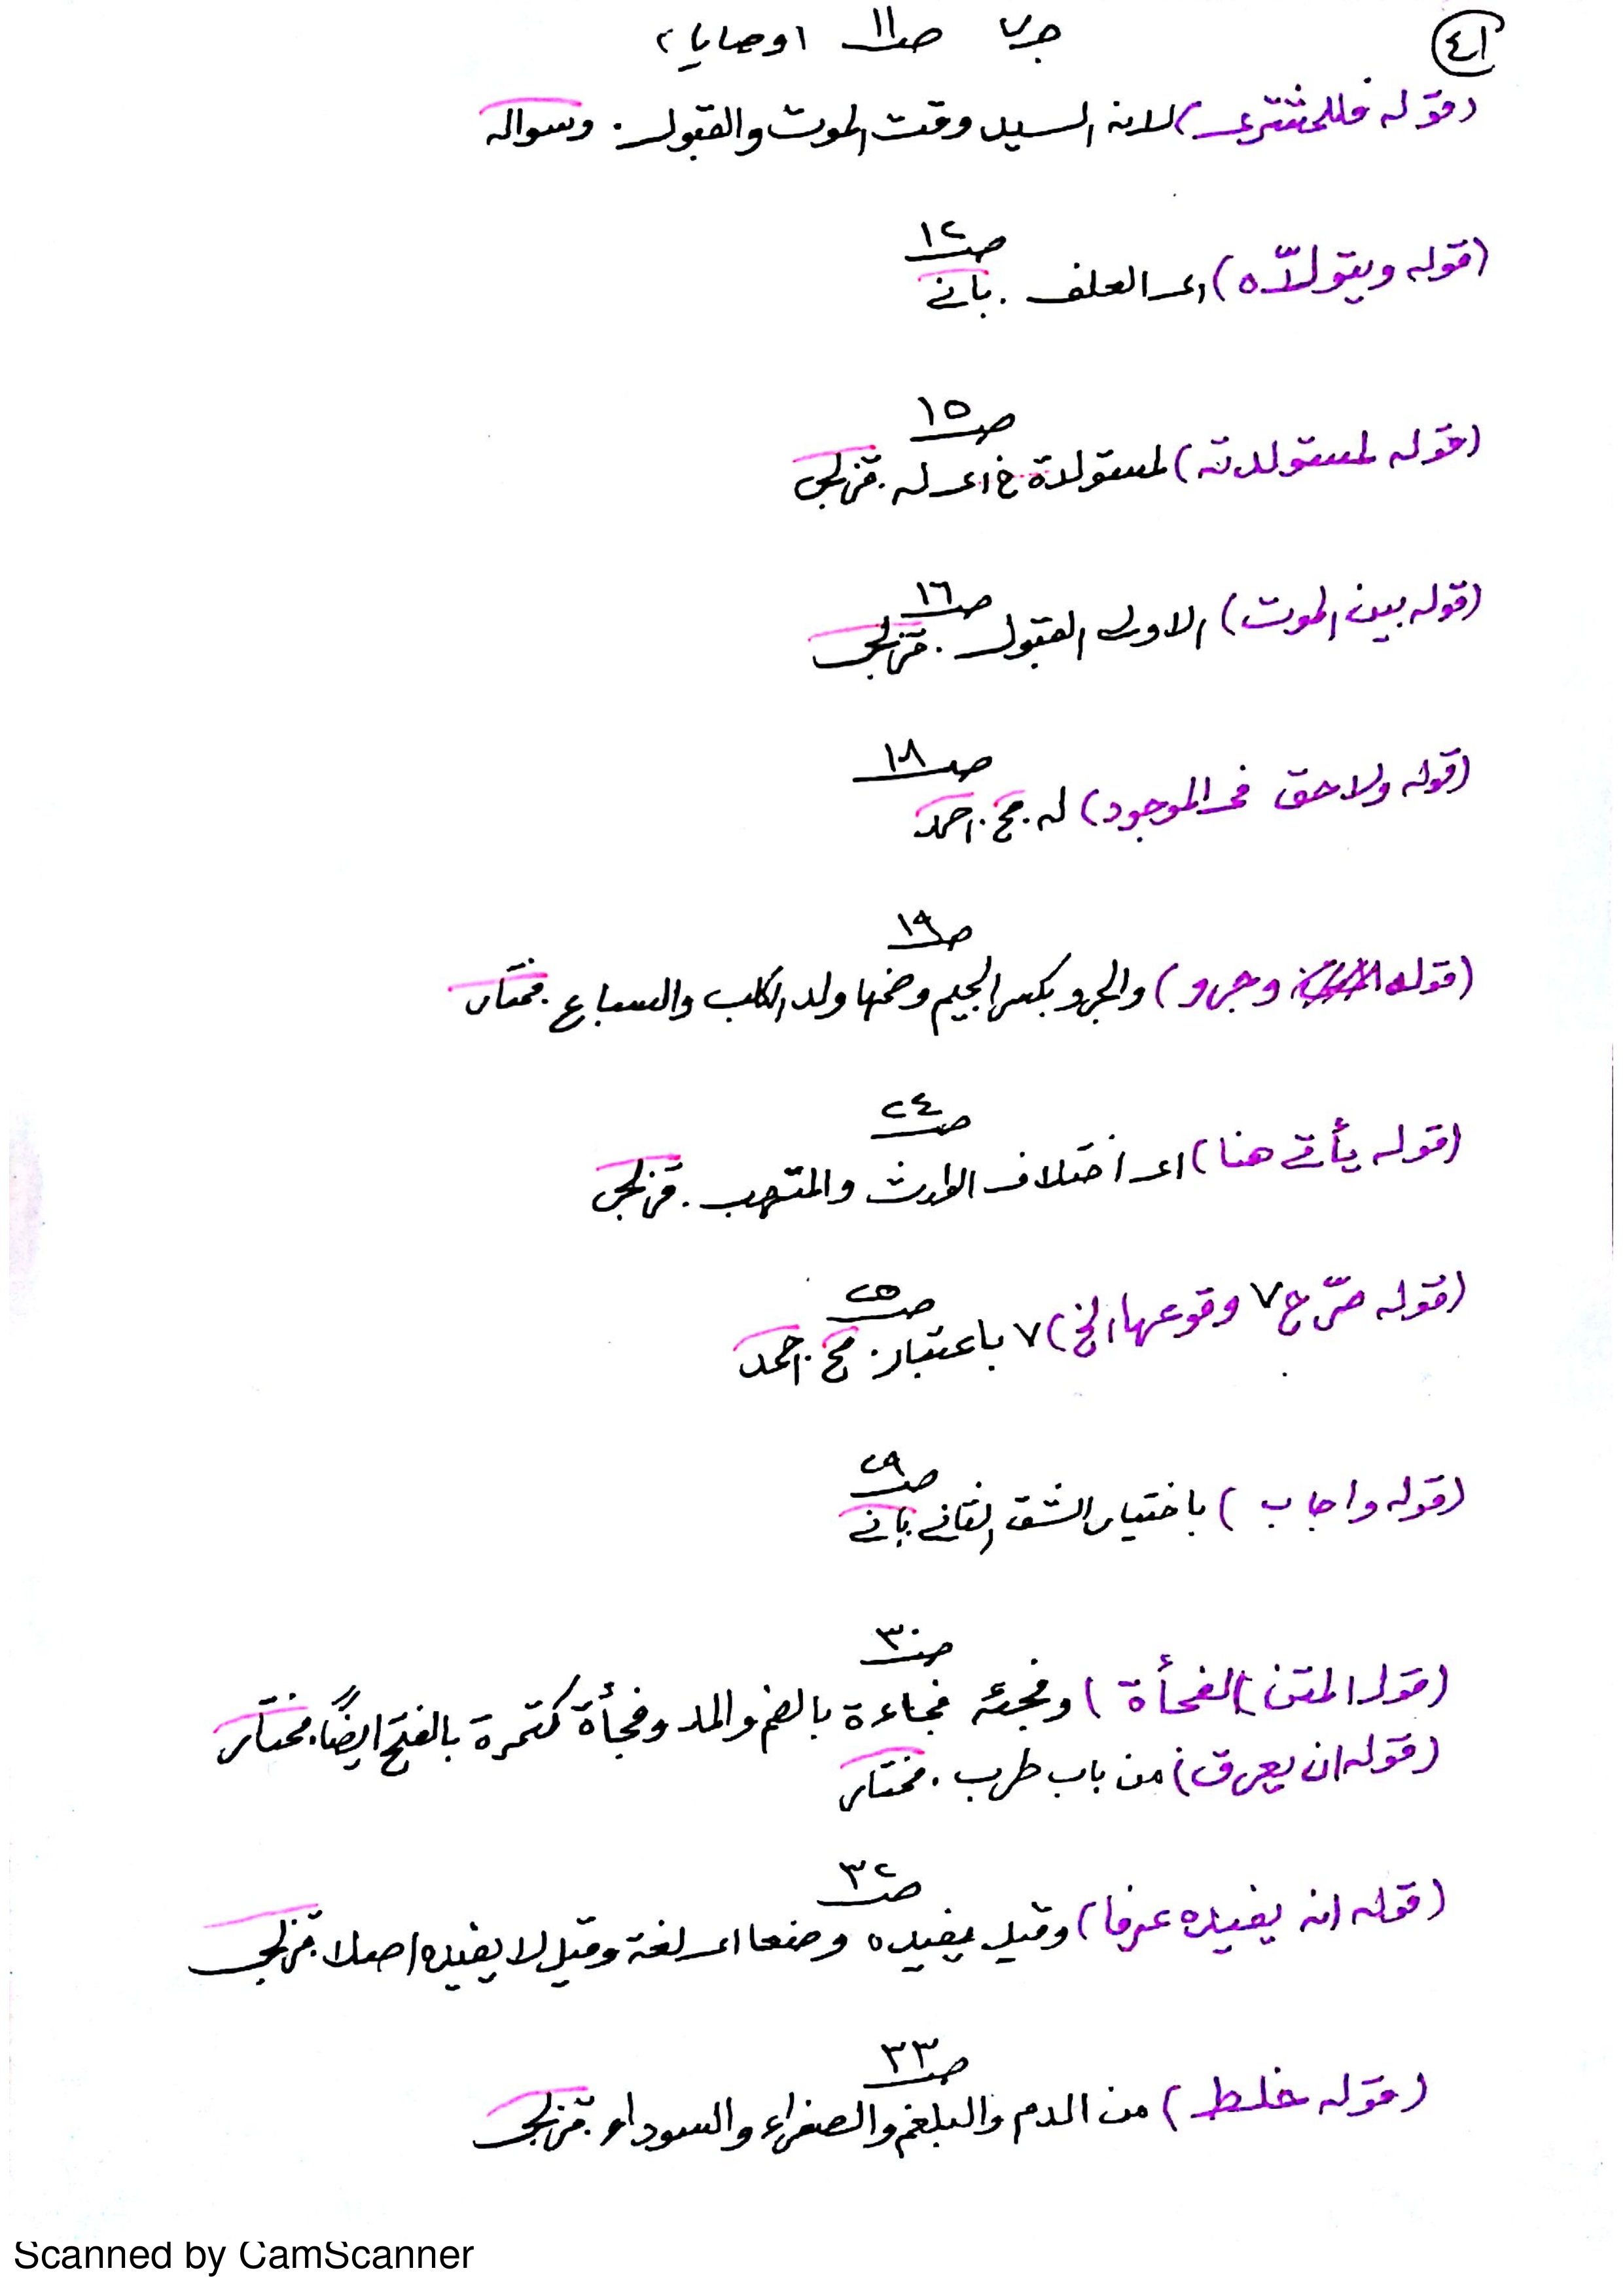 ٤١
ج٧ ص١١ اوصايا ٢
(قوله فللمشترى) لانه السيد وقت الموت والقبول. وسواله
ص١٢
(قوله ويتولده) اى العلف. بانى
ص١٥
(قوله لمستولدته) لمستولدة خ اى له. قزلجى
ص١٦
(قوله بين الموت) الاولى القبول. قزلجى
ص١٨
(قوله ولا حق فى الموجود) له. مح. احمد
ص١٩
(قوله وجرو) والجرو بكسر الجيم وضمها ولد الكلب والسباع. مختار
ص٢٤
(قوله يأتى هنا) اى اختلاف الوارث والمتهب. قزلجى
ص٢٥
(قوله صرّح ٧ وقوعها الخ) ٧ باعتبار. مح. احمد
ص٢٩
(قوله واجاب) باختيار الشق الثانى بانى
ص٣٠
(قول المتن الفجأة) وفجئه فجاءة بالضم والمد وفجأة كتمرة بالفتح ايضًا. مختار
(قوله ان يعرق) من باب طرب. مختار
ص٣٢
(قوله انه يفيده عرفا) وقيل يفيده وضعا اى لغة وقيل لا يفيده اصلا. قزلجى
ص٣٣
(قوله خلط) من الدم والبلغم والصفراء والسوداء. قزلجى
Scanned by CamScanner